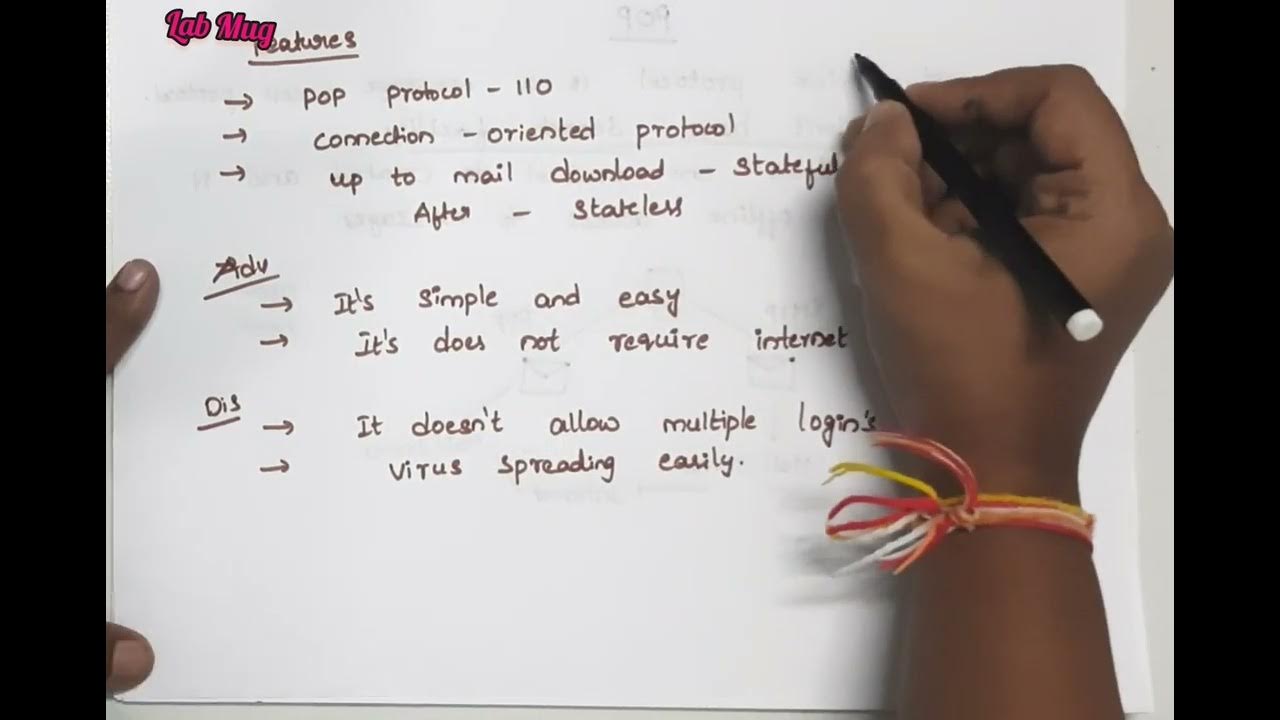 Lab Mug
Features
→ POP protocol - 110
→ connection - oriented protocol
→ up to mail download - Stateful
After - Stateless
Adv
→ It's simple and easy
→ It's does not require internet
Dis
→ It doesn't allow multiple login's
→ virus spreading easily.
POP